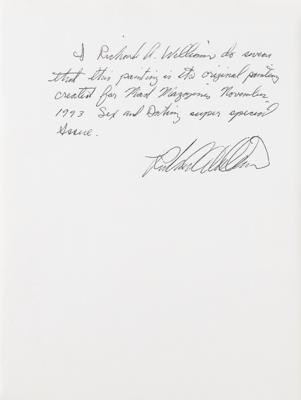 I Richard A. Williams do swear
that this painting is the original painting
created for Mad Magazine's November
1993 Sex and Dating super special
Issue.
Richard Williams